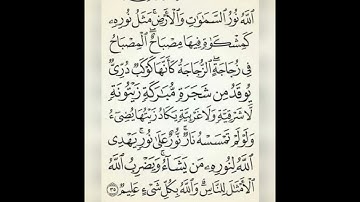 ٱللَّهُ نُورُ ٱلسَّمَٰوَٰتِ وَٱلْأَرْضِ مَثَلُ نُورِهِۦ
كَمِشْكَوٰةٍ فِيهَا مِصْبَاحٌ ٱلْمِصْبَاحُ
فِى زُجَاجَةٍ ٱلزُّجَاجَةُ كَأَنَّهَا كَوْكَبٌ دُرِّىٌّ
يُوقَدُ مِن شَجَرَةٍ مُّبَٰرَكَةٍ زَيْتُونَةٍ
لَّا شَرْقِيَّةٍ وَلَا غَرْبِيَّةٍ يَكَادُ زَيْتُهَا يُضِىٓءُ
وَلَوْ لَمْ تَمْسَسْهُ نَارٌ نُّورٌ عَلَىٰ نُورٍ يَهْدِى
ٱللَّهُ لِنُورِهِۦ مَن يَشَآءُ وَيَضْرِبُ ٱللَّهُ
ٱلْأَمْثَٰلَ لِلنَّاسِ وَٱللَّهُ بِكُلِّ شَىْءٍ عَلِيمٌ ٣٥